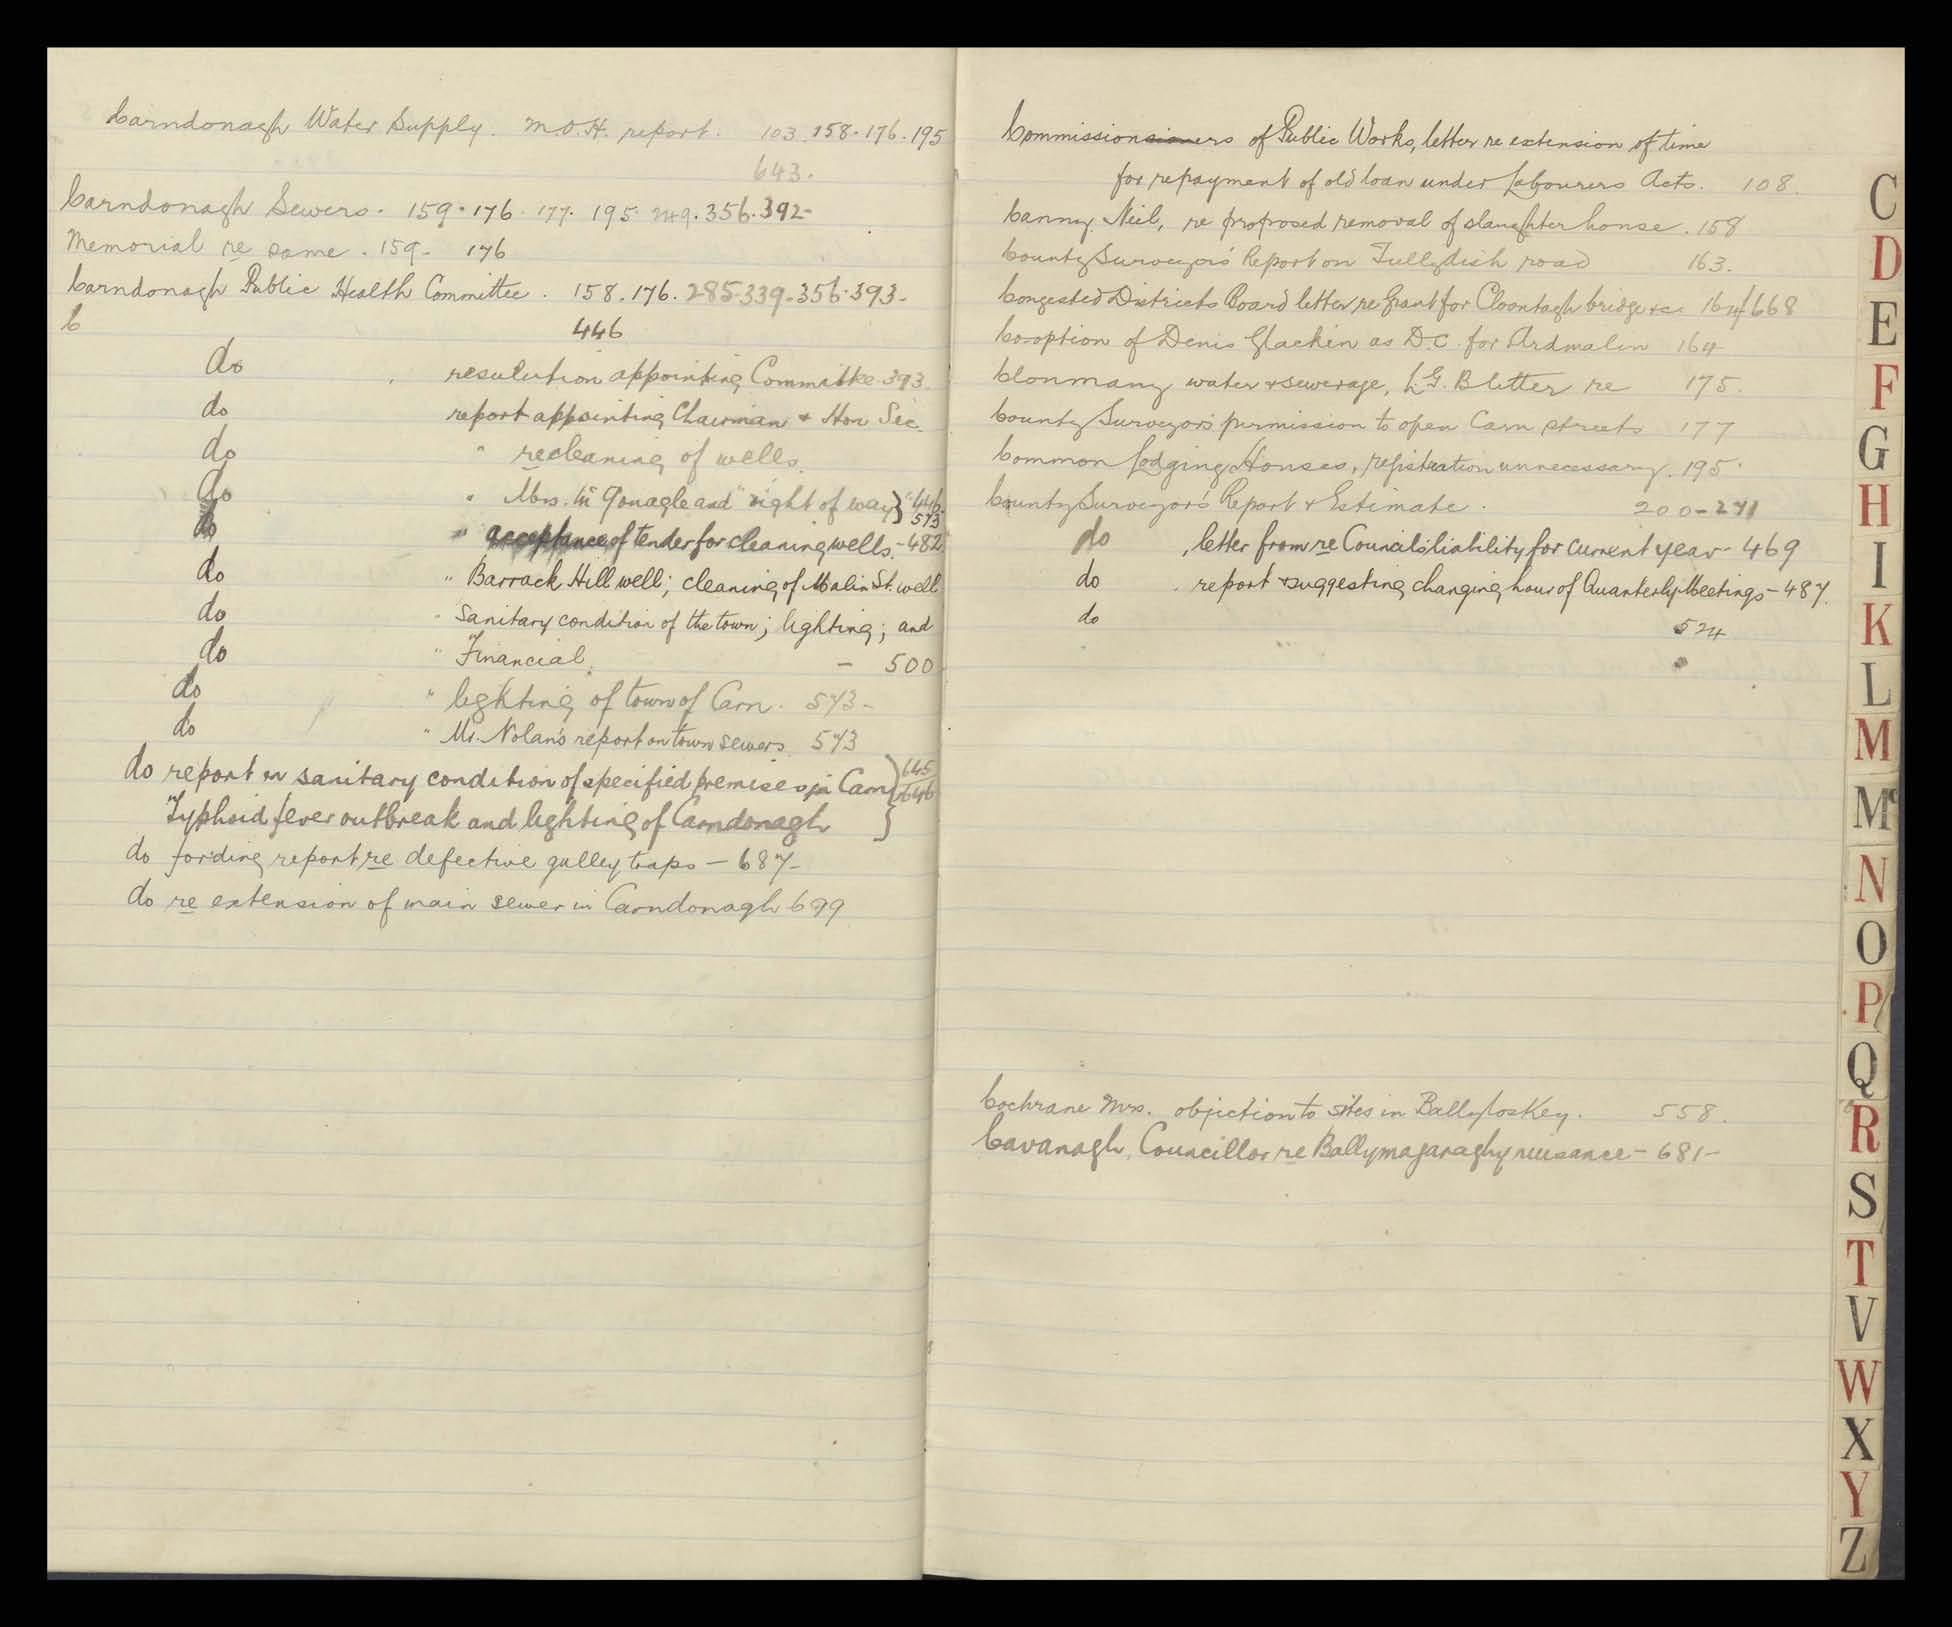 Carndonagh Water Supply. M.O.H. report. 103. 158. 176. 195
643.
Carndonagh Sewers. 159. 176. 177. 195. 249. 356. 392-
Memorial re same. 159- 176
Carndonagh Public Health Committee. 158. 176. 285-339-356-393-
C 446
do resolution appointing Committee 393.
do report appointing Chairman & Hon Sec.
do " recleaning of wells.
do " Mrs. McGonagle and right of way } 446. 573
do " acceptance of tender for cleaning wells - 482
do " Barrack Hill well; cleaning of Malin St. well
do " Sanitary condition of the town; lighting; and
do " Financial. - 500
do " lighting of town of Carn. 573-
do " Mr. Nolan's report on town sewers 573
do report on sanitary condition of specified premises in Carn } 645
Typhoid fever outbreak and lighting of Carndonagh } 646
do fording report re defective gulley traps - 687-
do re extension of main sewer in Carndonagh 699
Commissioners of Public Works, letter re extension of time
for repayment of old loan under Labourers Acts. 108.
Canny Neil, re proposed removal of slaughter house. 158
County Surveyors' Report on Tullydish road 163.
Congested Districts Board letter re Grant for Cloontagh bridge &c. 164/668
Co-option of Denis Glackin as D.C. for Ardmalin 164
Clonmany water & sewerage, L.G.B letter re 175.
County Surveyor's permission to open Carn streets 177
Common Lodging Houses, registration unnecessary. 195.
County Surveyor's Report & Estimate. 200-271
do , letter from re Council's liability for current year - 469
do , report & suggesting changing hour of Quarterly Meetings - 487.
do 524
Cochrane Mrs. objection to sites in Ballyloskey. 558.
Cavanagh, Councillor re Ballymagaraghy nuisance - 681-
C
D
E
F
G
H
I
K
L
M
Mc
N
O
P
Q
R
S
T
V
W
X
Y
Z